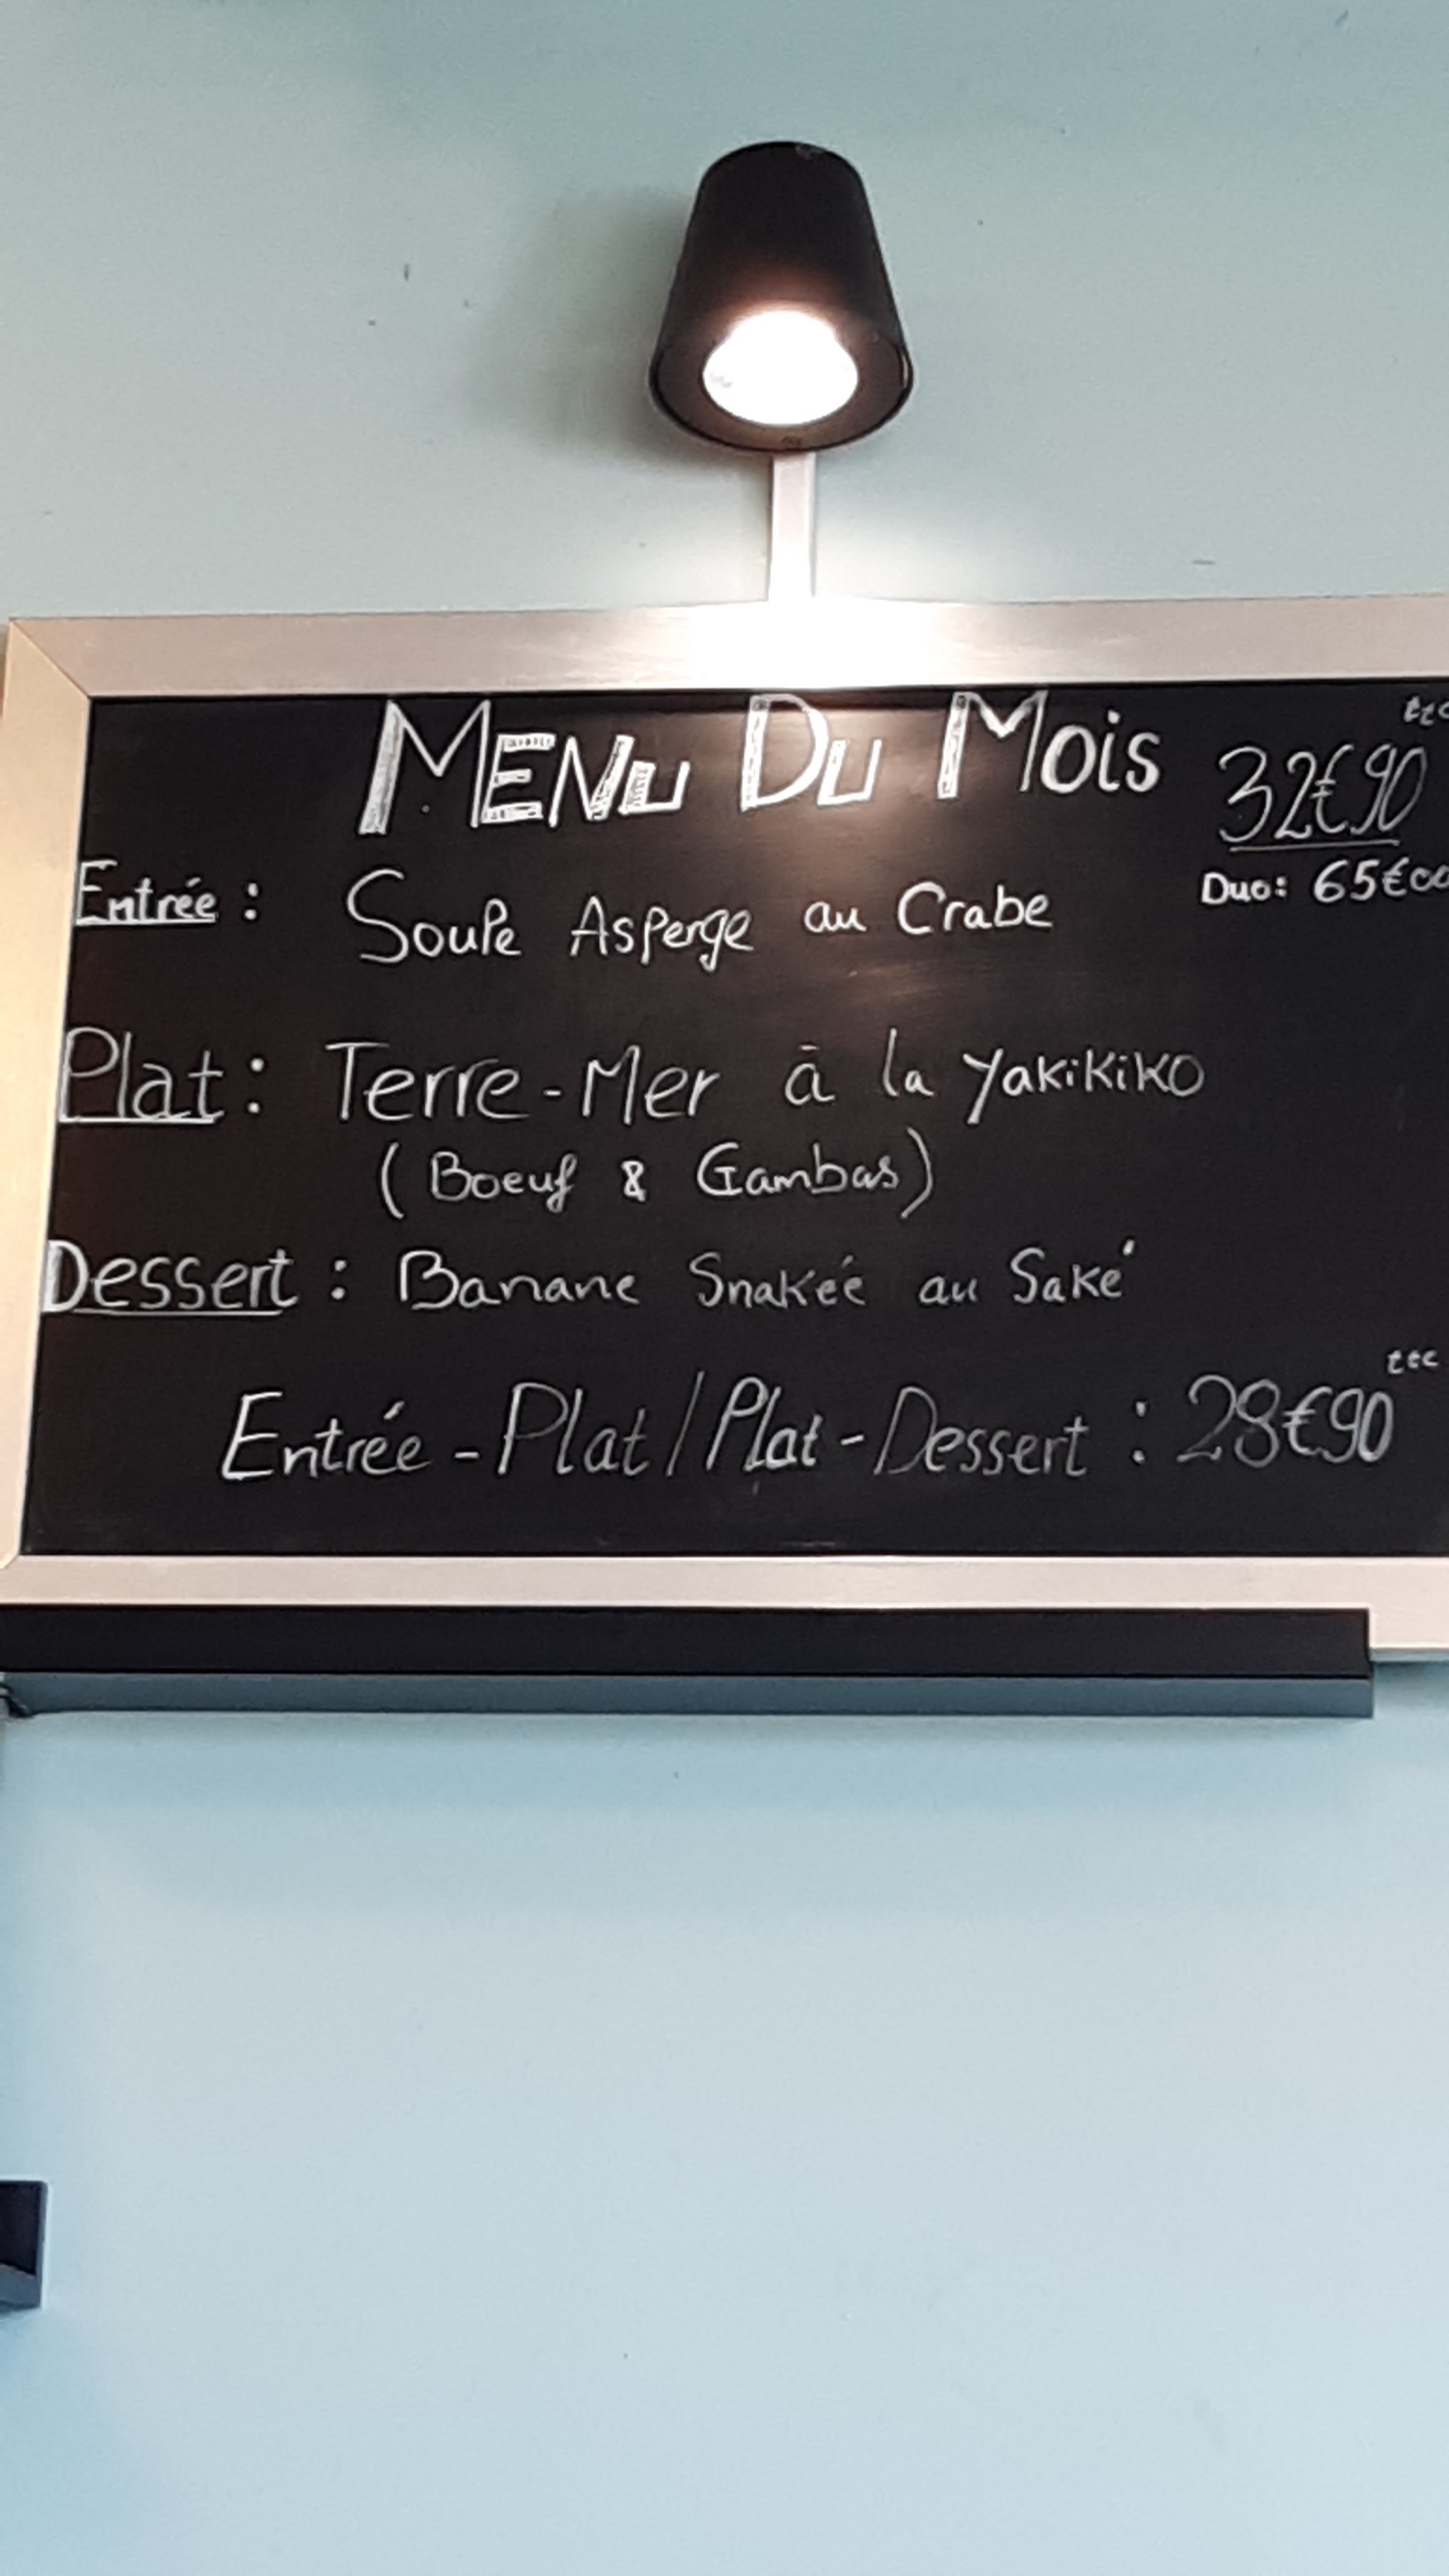 MENU DU MOIS 32€90 ttc
Duo: 65€00
Entrée : Soupe Asperge au Crabe
Plat : Terre-Mer à la yakikiko
(Boeuf & Gambas)
Dessert : Banane Snakée au Saké
Entrée - Plat / Plat - Dessert : 28€90 ttc